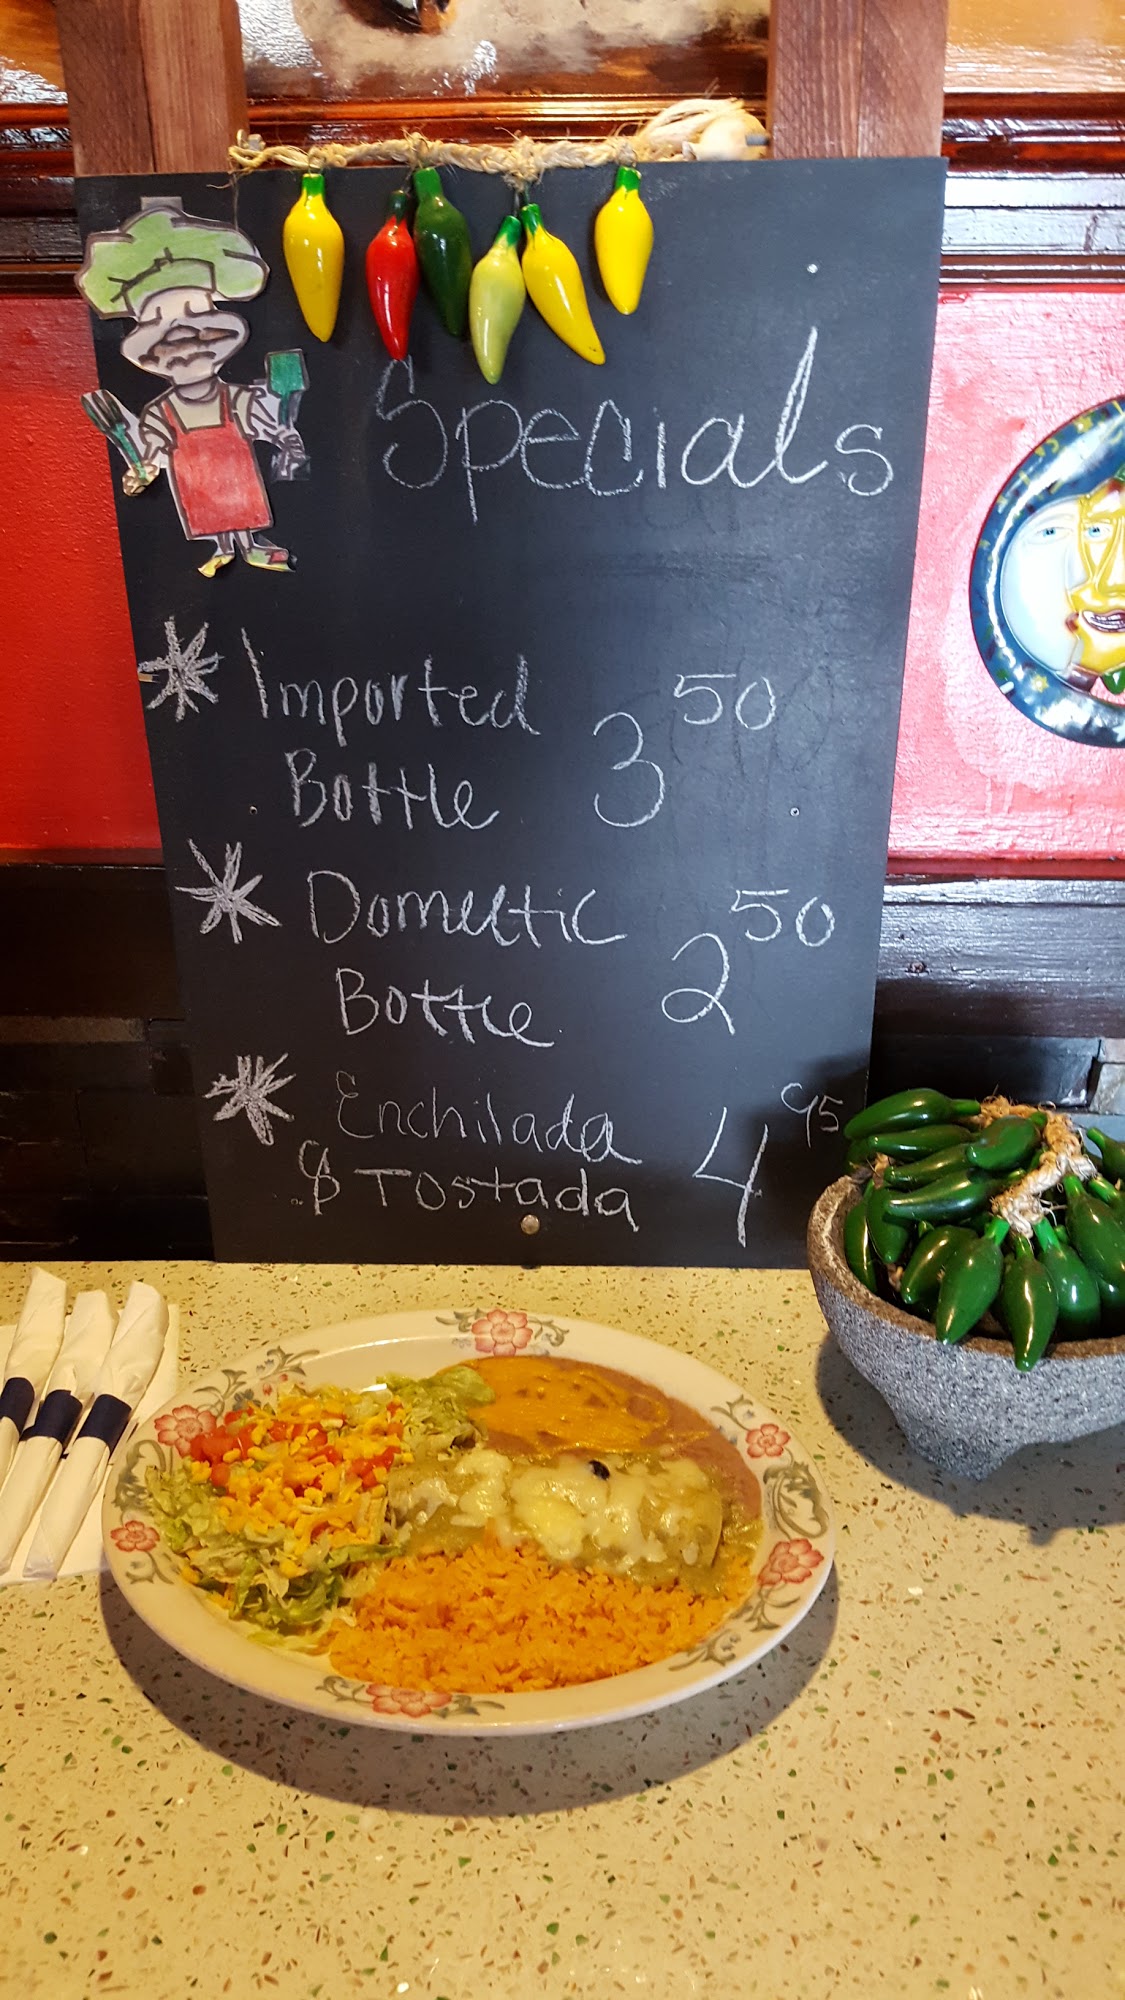 Specials
* Imported
Bottle 3 50
* Domestic
Bottle 2 50
* Enchilada
& Tostada 4 95